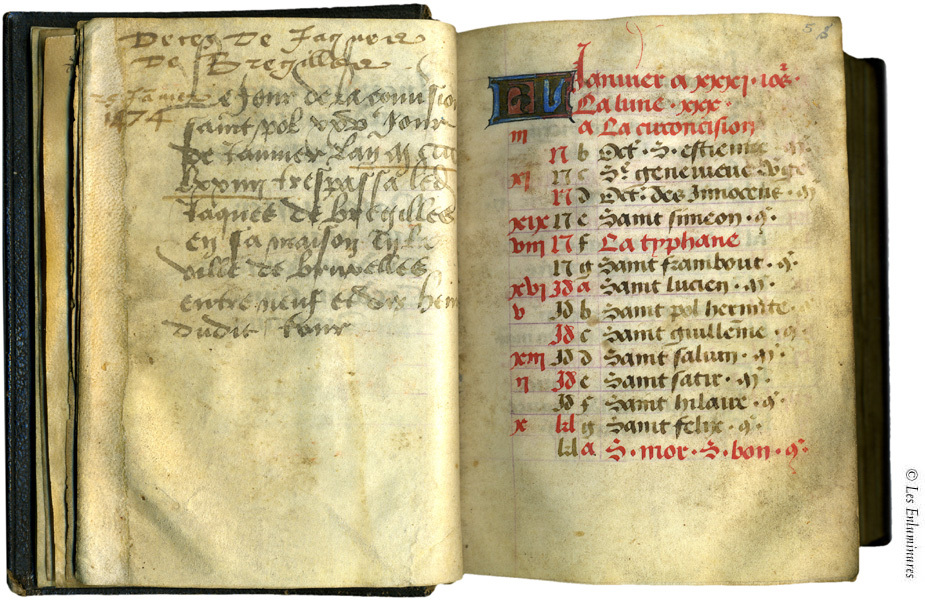 Deces De Jaques
De Bregilles
25 Janvier
1474
Le Jour de la convsio
saint pol xxv Jour
de Janvier Lan M CCCC
lxxiiij trespassa led
Jaques de bregilles
en sa maison en la
ville de bruxelles
entre neuf et dix heu
dudit Jour
5
KL Janvier a xxxi · ios.
La lune · xxx ·
iii a La circoncision
N b Oct · S · estienne · M
xi N c Ste genevieve vge
N d Oct · des Innocens · M
xix N e Saint simeon · q.
viii N f La typhane
N g Saint frambout · q.
xvi Id a Saint lucien · q.
v Id b Saint pol hermite · q
Id c Saint guillēme · q
xiii Id d Saint salvin · M.
ii Id e Saint satir · M.
Id f Saint hilaire · q.
x kl g Saint felix · q.
kl a S · mor · S · bon · q.
© Les Enluminures